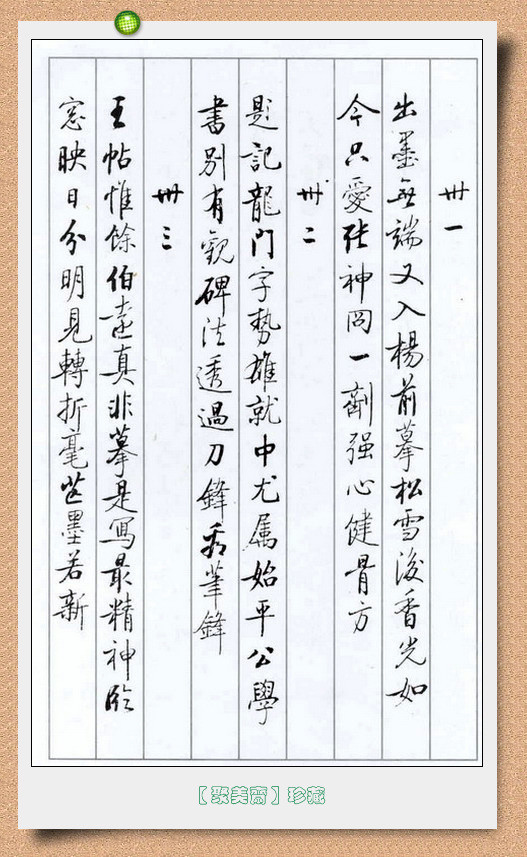 卅一
出墨無端又入楊前摹松雪後香光如
今只愛張神冏一劑强心健骨方
卅二
題記龍門字勢雄就中尤属始平公學
書别有觀碑法透過刀鋒看筆鋒
卅三
王帖惟餘伯遠真非摹是寫最精神臨
窓映日分明見轉折毫芒墨若新
【聚美齋】珍藏